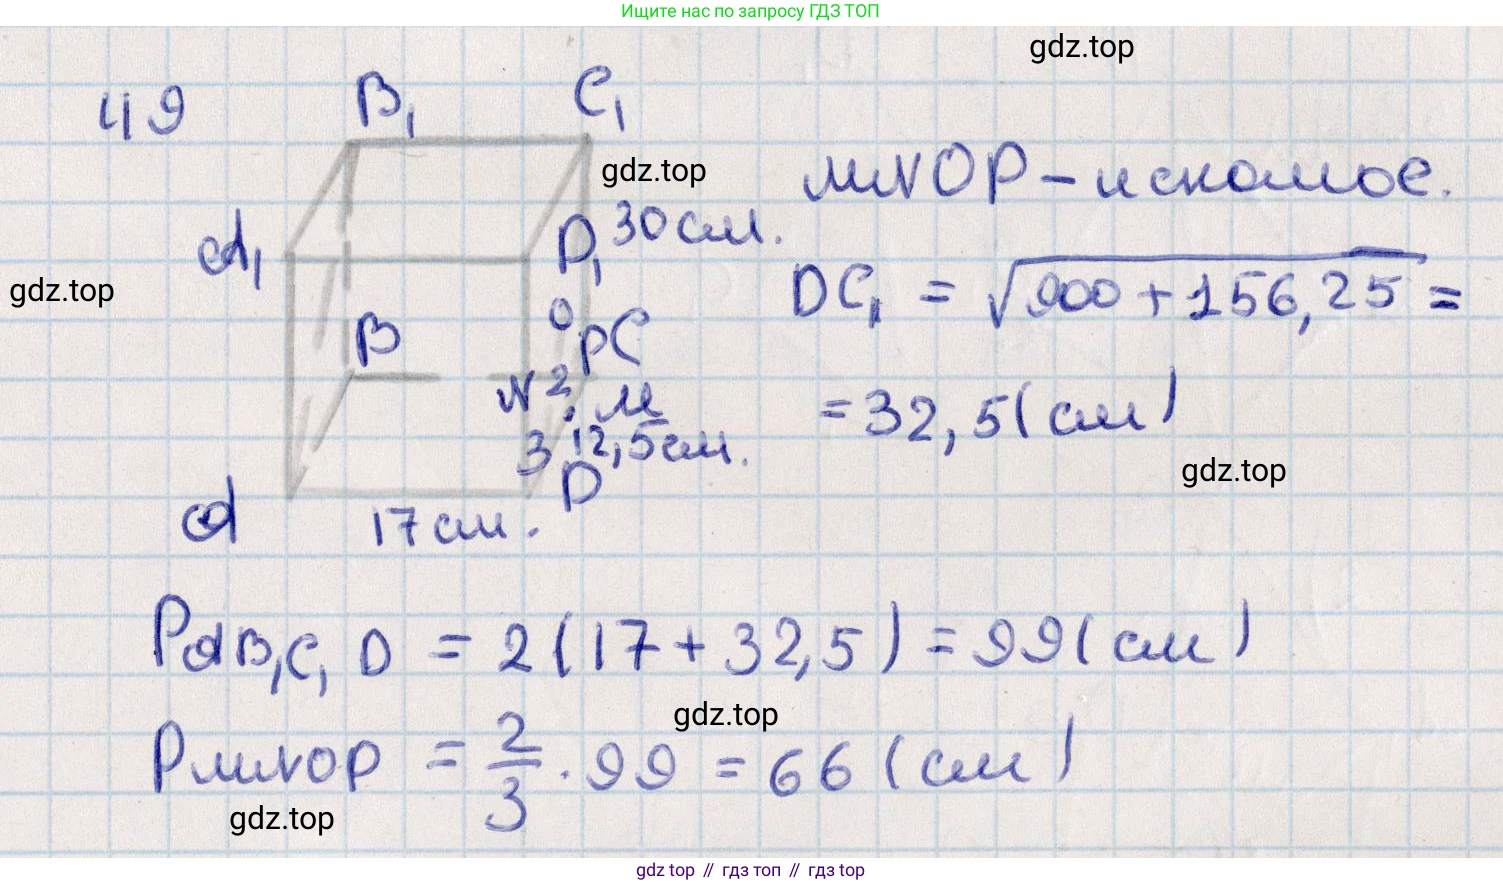 Ищите нас по запросу ГДЗ ТОП
gdz.top
419
B₁ C₁
gdz.top
MNOP - искомое.
A₁ D₁ 30 см.
gdz.top
DC₁ = √900 + 156,25 =
O
B P C
N 2 : M
= 32,5 (см)
3 12,5 см.
gdz.top
A D
17 см.
P AB₁C₁D = 2 (17 + 32,5) = 99 (см)
gdz.top
P MNOP = 2/3 · 99 = 66 (см)
gdz.top
gdz top // гдз топ // gdz top